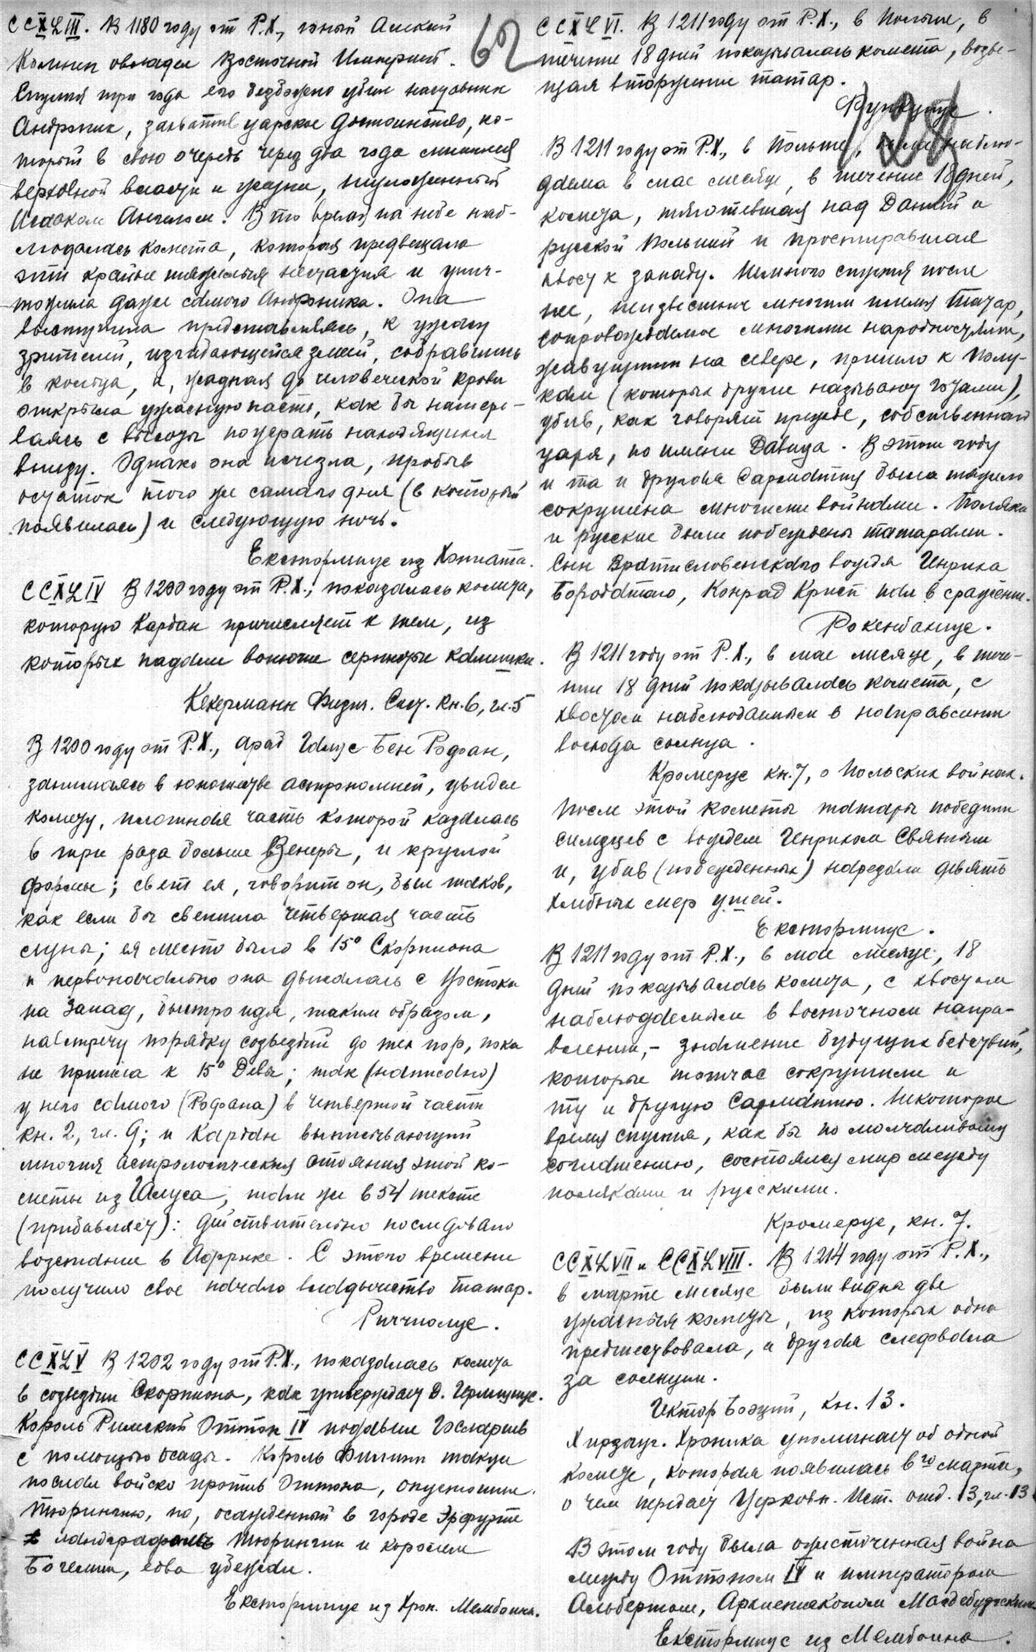 CCXLIII. В 1180 году от Р.Х., юный Алексий
Комнин овладел Восточной Империей.
Спустя три года его безбожно убил наставник
Андроник, захватив царское достоинство, ко-
торый в свою очередь через два года лишился
верховной власти и жизни, низложенный
Исааком Ангелом. В то время на небе наб-
людалась комета, которая предвещала
эти крайне тяжелыя несчастия и унич-
тожила даже самого Андроника. Она
выступила представляясь, к ужасу
зрителей, изгибающейся змеей, собравшись
в кольца, и, жадная до человеческой крови
открыла ужасную пасть, как бы намере-
ваясь с высоты пожрать находящихся
внизу. Однако она исчезла, пробыв
остаток того же самаго дня (в который
появилась) и следующую ночь.
Eкстормиус из Хониата.
CCXLIV В 1200 году от Р.Х., показалась комета,
которую Кардан причисляет к тем, из
которых падали вонючие серные камешки.
Кекерманн Физич. Сист. кн. 6, гл. 5
В 1200 году от Р.Х., араб Галус Бен Родоан,
занимаясь в юношестве астрономией, увидел
комету, плотная часть которой казалась
в три раза больше Венеры, и круглой
формы; свет ея, говорит он, был таков,
как если бы светила четвертая часть
луны; ея место было в 15° Скорпиона
и первоначально она двигалась с востока
на запад, быстро идя, таким образом,
навстречу порядку созвездий до тех пор, пока
не пришла к 15° Девы; так (написано)
у него самого (Родоана) в четвертой части
кн. 2, гл. 9; и Кардан выписывающий
многия астрологическия стояния этой ко-
меты из Галуса, там же в 54 тексте
(прибавляет): действительно последовало
возстание в Африке. С этого времени
получило свое начало владычество татар.
Риччиолус.
CCXLV В 1202 году от Р.Х., показалась комета
в созвездии Скорпиона, как утверждает О. Герлициус.
Король Римский Оттон IV подавил Гослариев
с помощью осады. Король Филипп также
послал войско против Оттона, опустошил
Тюрингию, но, осажденный в городе Эрфурте
ландграфом Тюрингии и королем
Богемии, едва убежал.
Eкстормиус из Хрон. Мембоина.
62
CCXLVI. В 1211 году от Р.Х., в Польше, в
течение 18 дней показывалась комета, возве-
щая вторжение татар.
Функциус.
128
В 1211 году от Р.Х., в Польше, была наблю-
даема в мае месяце, в течение 18 дней,
комета, тяготевшая над Данией и
русской Польшей и простиравшая
хвост к западу. Немного спустя после
нее, неизвестное многим племя татар,
сопровождаемое многими народностями,
живущими на севере, пришло к Полу-
кам (которых другие называют готами),
убив, как говорят прежде, собственного
царя, по имени Давида. В этом году
и та и другая Сарматия была тяжело
сокрушена многими войнами. Поляки
и русские были побеждены татарами.
Сын Вратиславенскаго вождя Генриха
Бородатого, Конрад Крисп пал в сражении.
Рокенбахиус.
В 1211 году от Р.Х., в мае месяце, в тече-
ние 18 дней показывалась комета, с
хвостом наблюдаемым в направлении
восхода солнца.
Кромерус кн. 7, о Польских войнах.
После этой кометы татары победили
силезцев с вождем Генрихом Святым
и, убив (побежденных) нарезали девять
хлебных мер ушей.
Eкстормиус.
В 1211 году от Р.Х., в мае месяце, 18
дней показывалась комета, с хвостом
наблюдаемым в восточном напра-
влении,- знамение будущих бедствий,
которые тотчас сокрушили и
ту и другую Сарматию. Некоторое
время спустя, как бы по молчаливому
соглашению, состоялся мир между
поляками и русскими.
Кромерус, кн. 7.
CCXLVII и CCXLVIII. В 1214 году от Р.Х.,
в марте месяце были видны две
ужасныя кометы, из которых одна
предшествовала, а другая следовала
за солнцем.
Гектор Боэций, кн. 13.
Хирзауг. Хроника упоминает об одной
комете, которая появилась в го марта,
о чем передает Церковн. Ист. отд. 13, гл. 13
В этом году была ожесточенная война
между Оттоном IV и императором
Альбертом, Архиепископом Магдебургским
Eкстормиус из Мембоина.